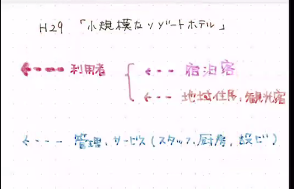 H29 「小規模なリゾートホテル」
利用者
宿泊客
地域住民、観光客
管理、サービス(スタッフ、厨房、設ビ)